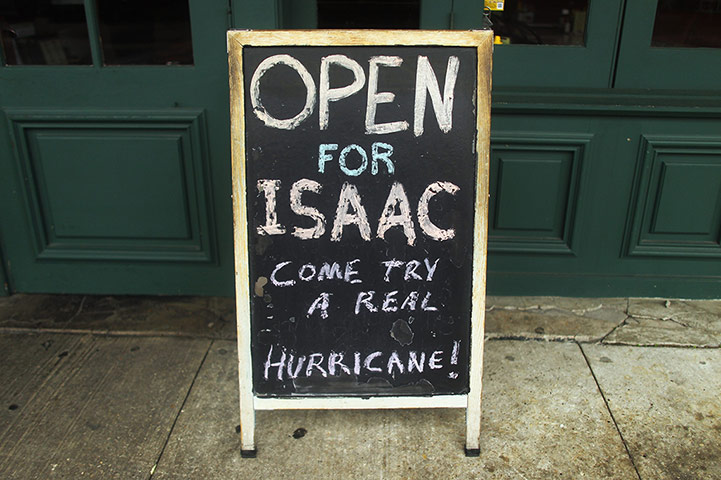 OPEN
FOR
ISAAC
COME TRY
A REAL
HURRICANE!